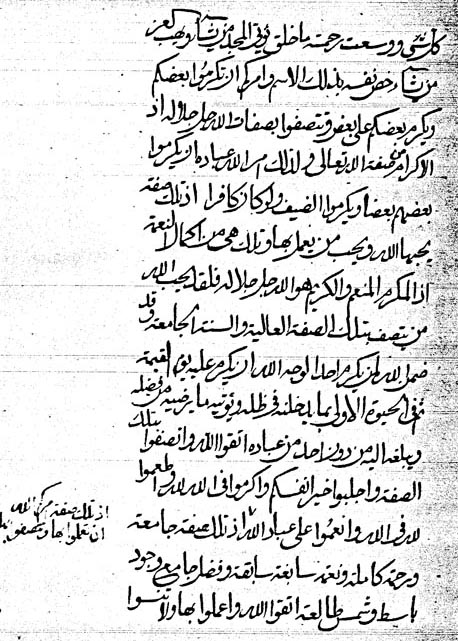 كل شيء ووسعت رحمته ما خلق يؤتي المجد من يشاء ويهب لمن
من يشاء خص نفسه بذلك الاسم وامركم ان تكرموا بعضكم
ويكرم بعضكم على بعض وتتصفوا بصفات الله جل جلاله اذ
الاكرام من صفة الله تعالى ولذلك امر الله عباده ان يكرموا
بعضهم بعضا ويكرموا الضيف ولو كان كافرا اذ تلك صفة
يحبها الله ويحب من يعمل بها وتلك هي من اكمال النعمة
اذ المكرم المنعم والكريم هو الله جل جلاله فلقد يحب الله
من يتصف بتلك الصفة العالية والسنة الجامعة وقد
ضمن الله لمن يكرم احدا لوجه الله ان يكرم عليه يوم القيمة
ثم في الحيوة الاولى بما يدخله في ظله ويؤتيه ما يرضيه من فضله
ويبلغه اليه من دون احد من عباده اتقوا الله واتصفوا بتلك
الصفة واجلبوا خير انفسكم واكرموا في الله لله واطعموا
لله في الله وانعموا على عباد الله اذ تلك صفة جامعة
ورحمة كاملة ونعمة سابغة سابقة وفضل جامع وجود
باسط وشمس طالعة اتقوا الله واعملوا بها ولا تنسوا
اذ تلك صفة من الله
ان تعملوا بها وتتصفوا بها